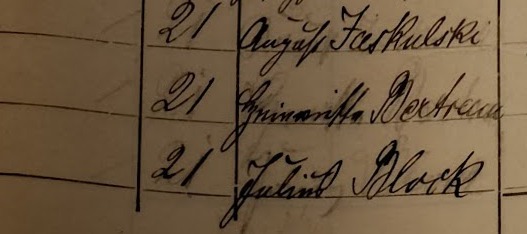 21 August Jaskulski
21 Henriette Bertram
21 Julius Block